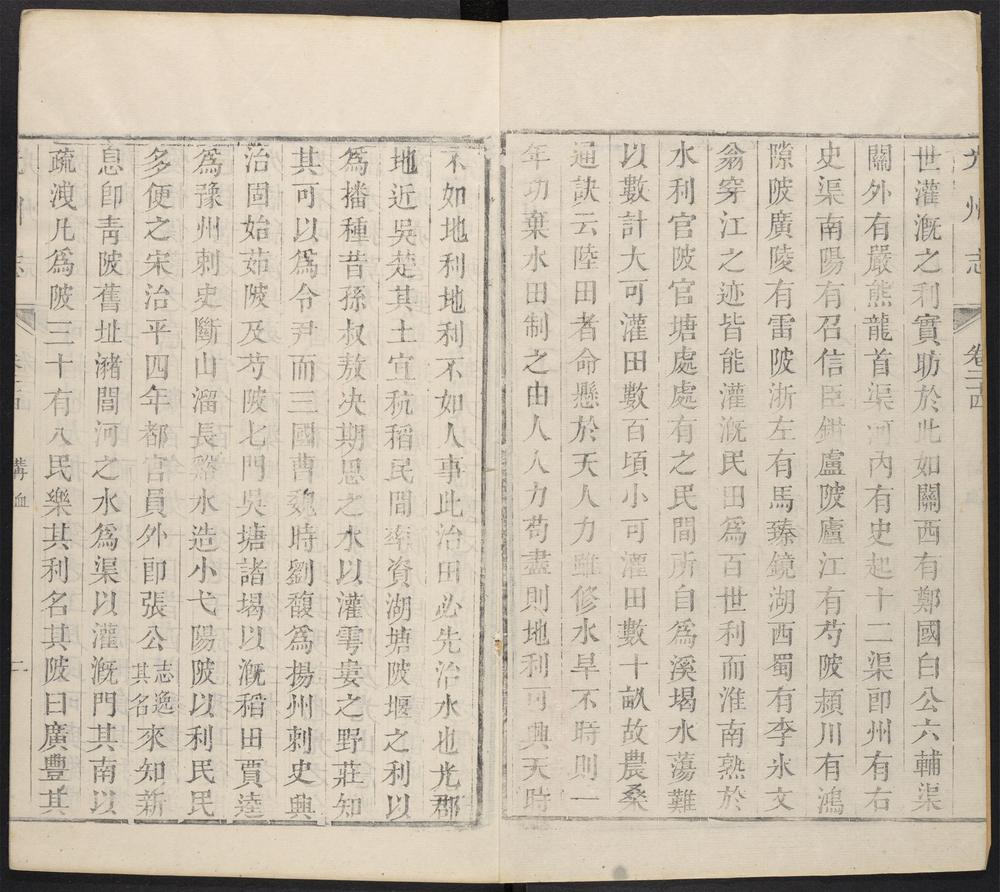 光州志 卷二十四
世灌溉之利實助於此如關西有鄭國白公六輔渠
關外有嚴熊龍首渠河內有史起十二渠卽州有右
史渠南陽有召信臣鉗盧陂廬江有芍陂潁川有鴻
隙陂廣陵有雷陂浙左有馬臻鏡湖西蜀有李氷文
翁穿江之迹皆能灌溉民田爲百世利而淮南熟於
水利官陂官塘處處有之民間所自爲溪堨水蕩難
以數計大可灌田數百頃小可灌田數十畝故農桑
通訣云陸田者命懸於天人力雖修水旱不時則一
年功棄水田制之由人人力苟盡則地利可興天時
不如地利地利不如人事此治田必先治水也光郡
地近吳楚其土宜秔稻民間率資湖塘陂堰之利以
爲播種昔孫叔敖决期思之水以灌雩婁之野莊知
其可以爲令尹而三國曹魏時劉馥爲揚州刺史興
治固始茹陂及芍陂七門吳塘諸堨以溉稻田賈逵
爲豫州刺史斷山溜長谿水造小弋陽陂以利民民
多便之宋治平四年都官員外卽張公志逸其名來知新
息卽靑陂舊址瀦閭河之水爲渠以灌溉門其南以
疏洩凡爲陂三十有八民樂其利名其陂曰廣豐其
溝洫 二